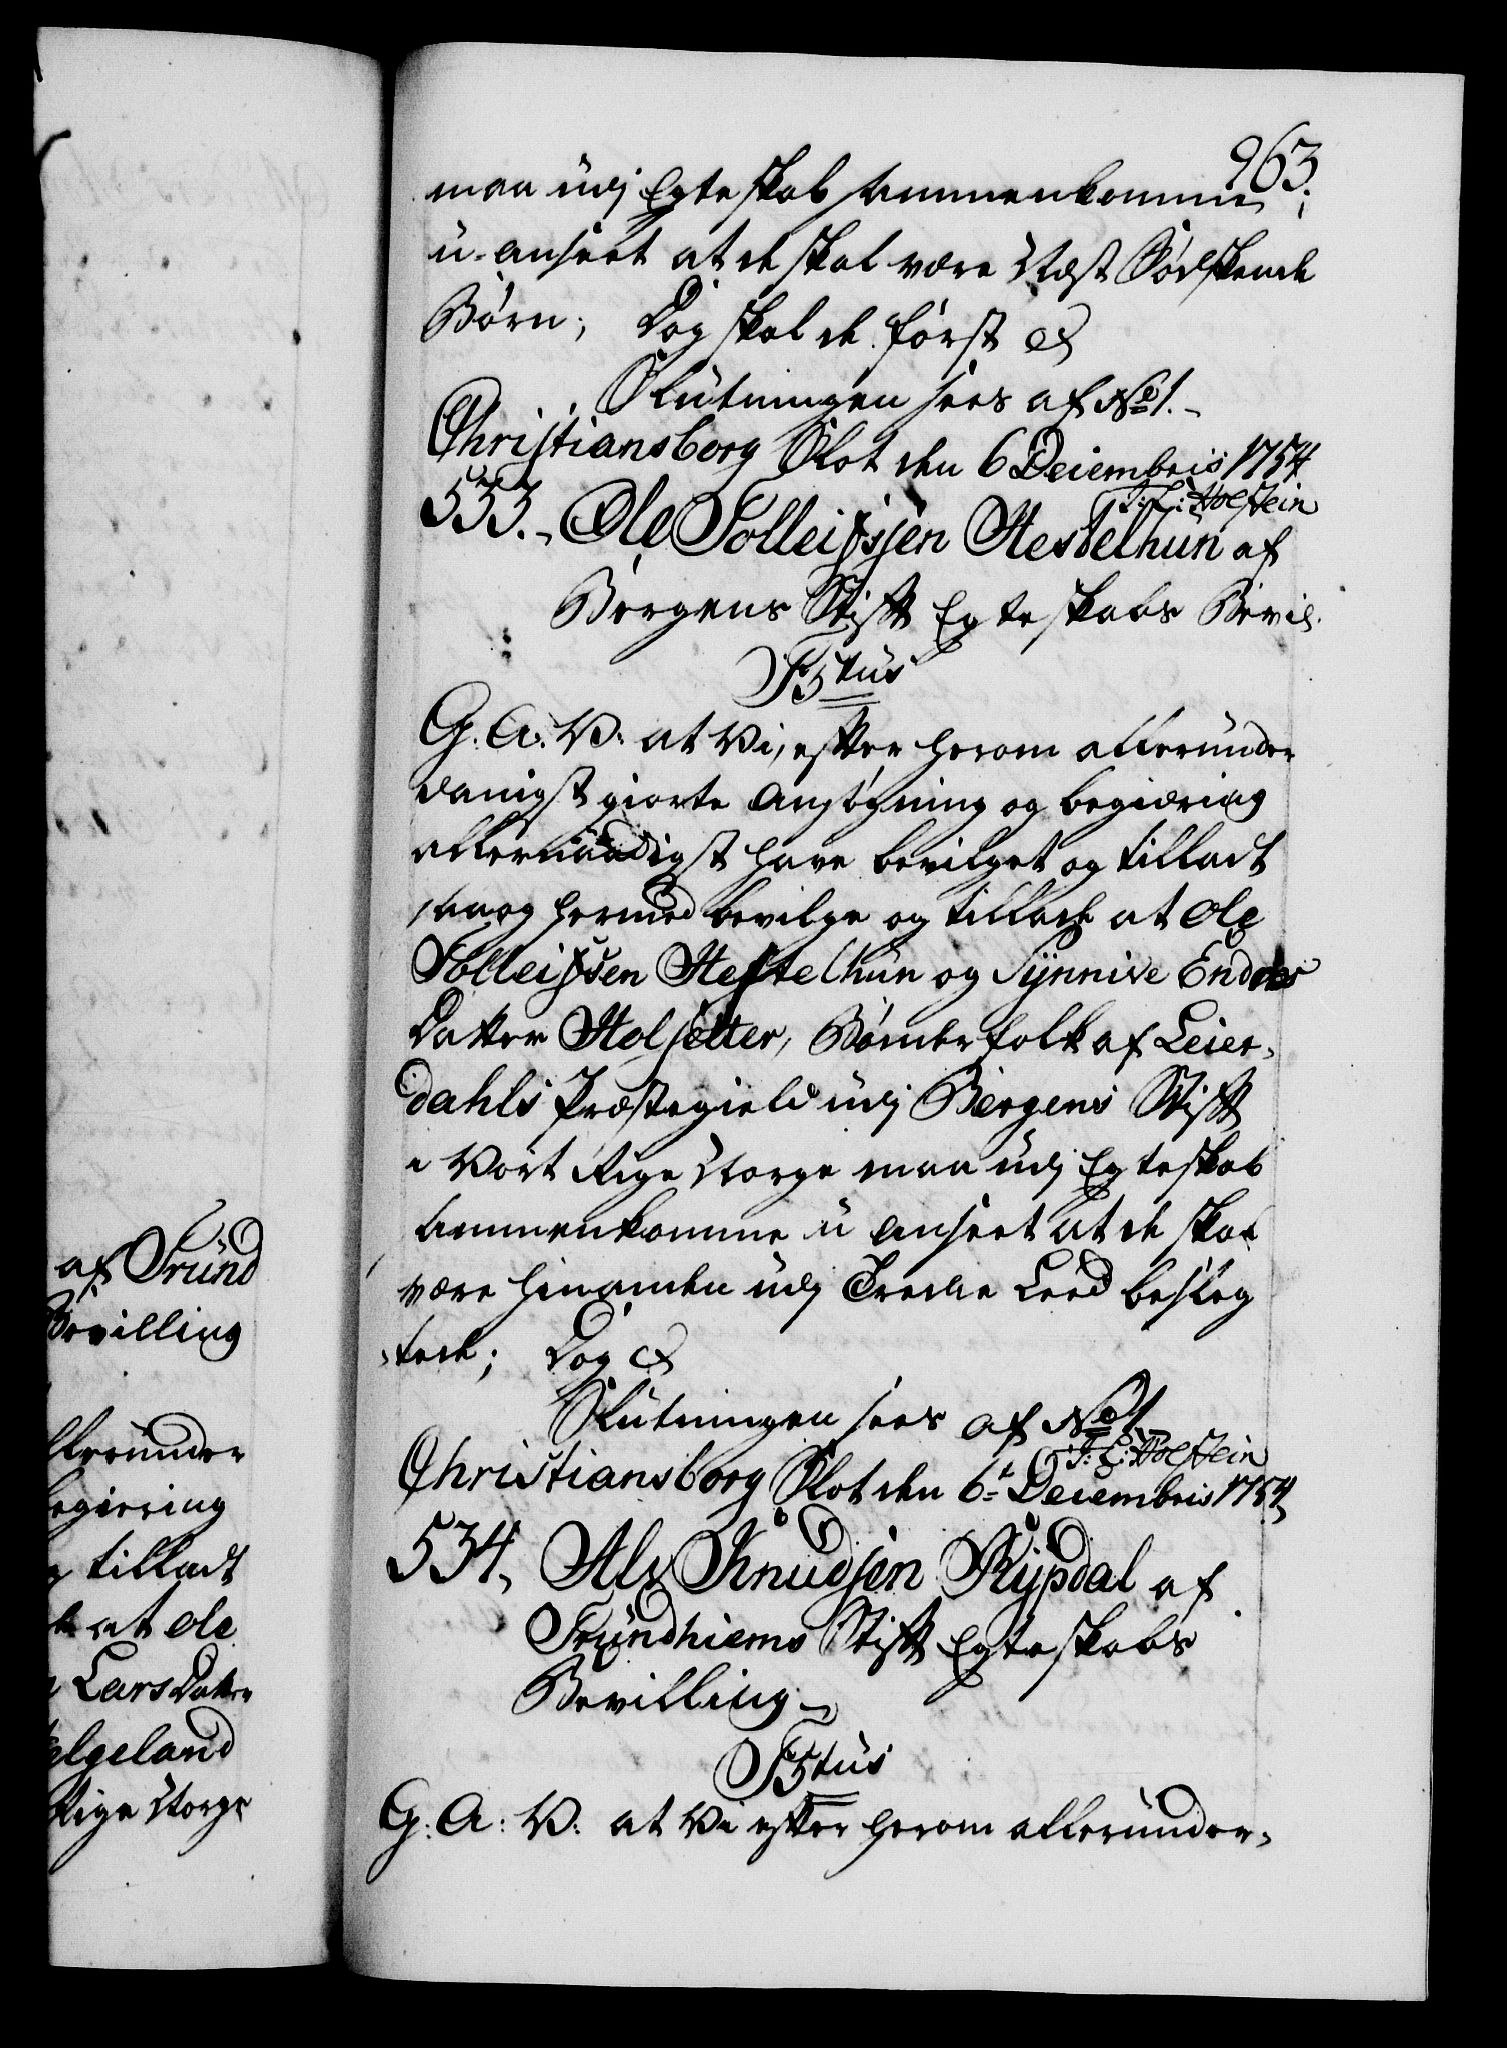 963.
maa udj Egteskab sammenkomme,
u-anseet at de skal være Næst Sødskende
Børn; Dog skal de først &
Slutningen sees af No 1.
Christiansborg Slot den 6 Decembris 1754
J: L: Holstein
533. Ole Tolleifsen Hestelhun af
Bergens Stift Egteskabs Bevil.
F5tus
G. A. V. at Vi, efter herom allerunder
danigst giorte Ansøgning og begiæring
allernaadigst have bevilget og tilladt
saa og hermed bevilge og tillade at Ole
Tolleifsen Hestelhun og Synnive Enders
Datter Holsetter, Bønderfolk af Leier-
dahls Præstegield udj Bergens Stift
i Vort Rige Norge maa udj Egteskab
sammenkomme u anseet at de skal
være hinanden udj Tredie Leed beslæg
tede; Dog &
Slutningen sees af No 1
J: L: Holstein
Christiansborg Slot den 6t Decembris 1754
534. Alv Knudsen Rypdal af
Trundhiems Stift Egteskabs
Bevilling
F5tus
G. A: V. at Vi efter herom allerunder-
af Trund
Bevilling
allerunder
begiering
og tilladt
at ole
Lars Datter
Helgeland
Rige Norge